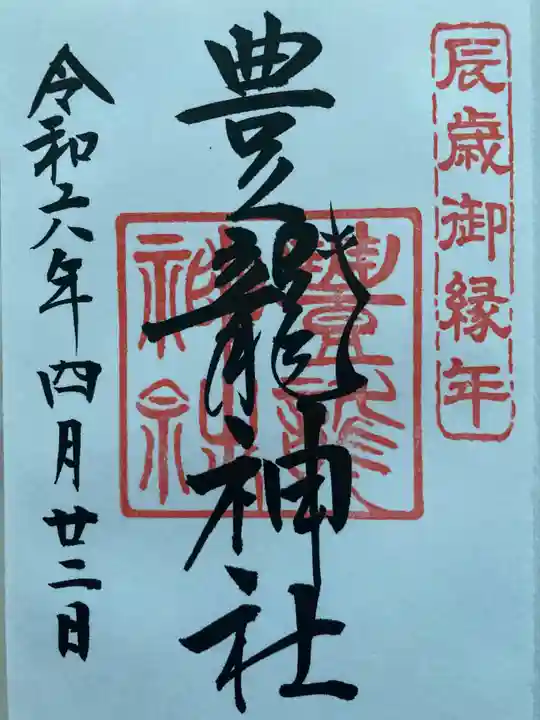 辰歳御縁年
豊龍神社
豊龍
神社
令和六年四月廿二日